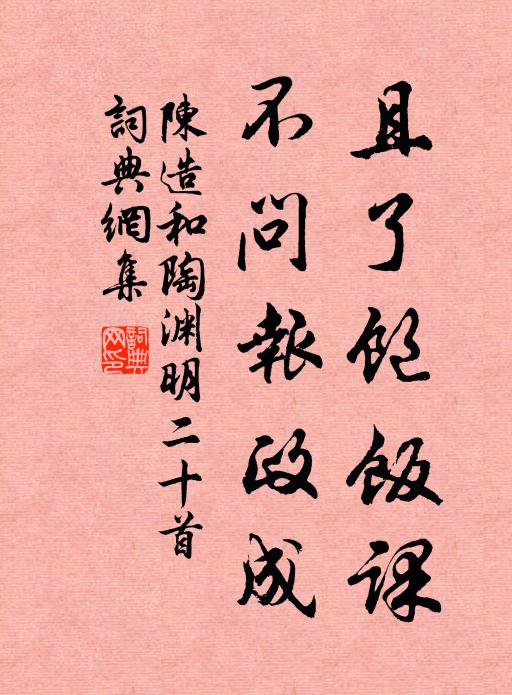 且了飽飯課
不問報政成
陳造和陶淵明二十首
詞典網集
詞典網印